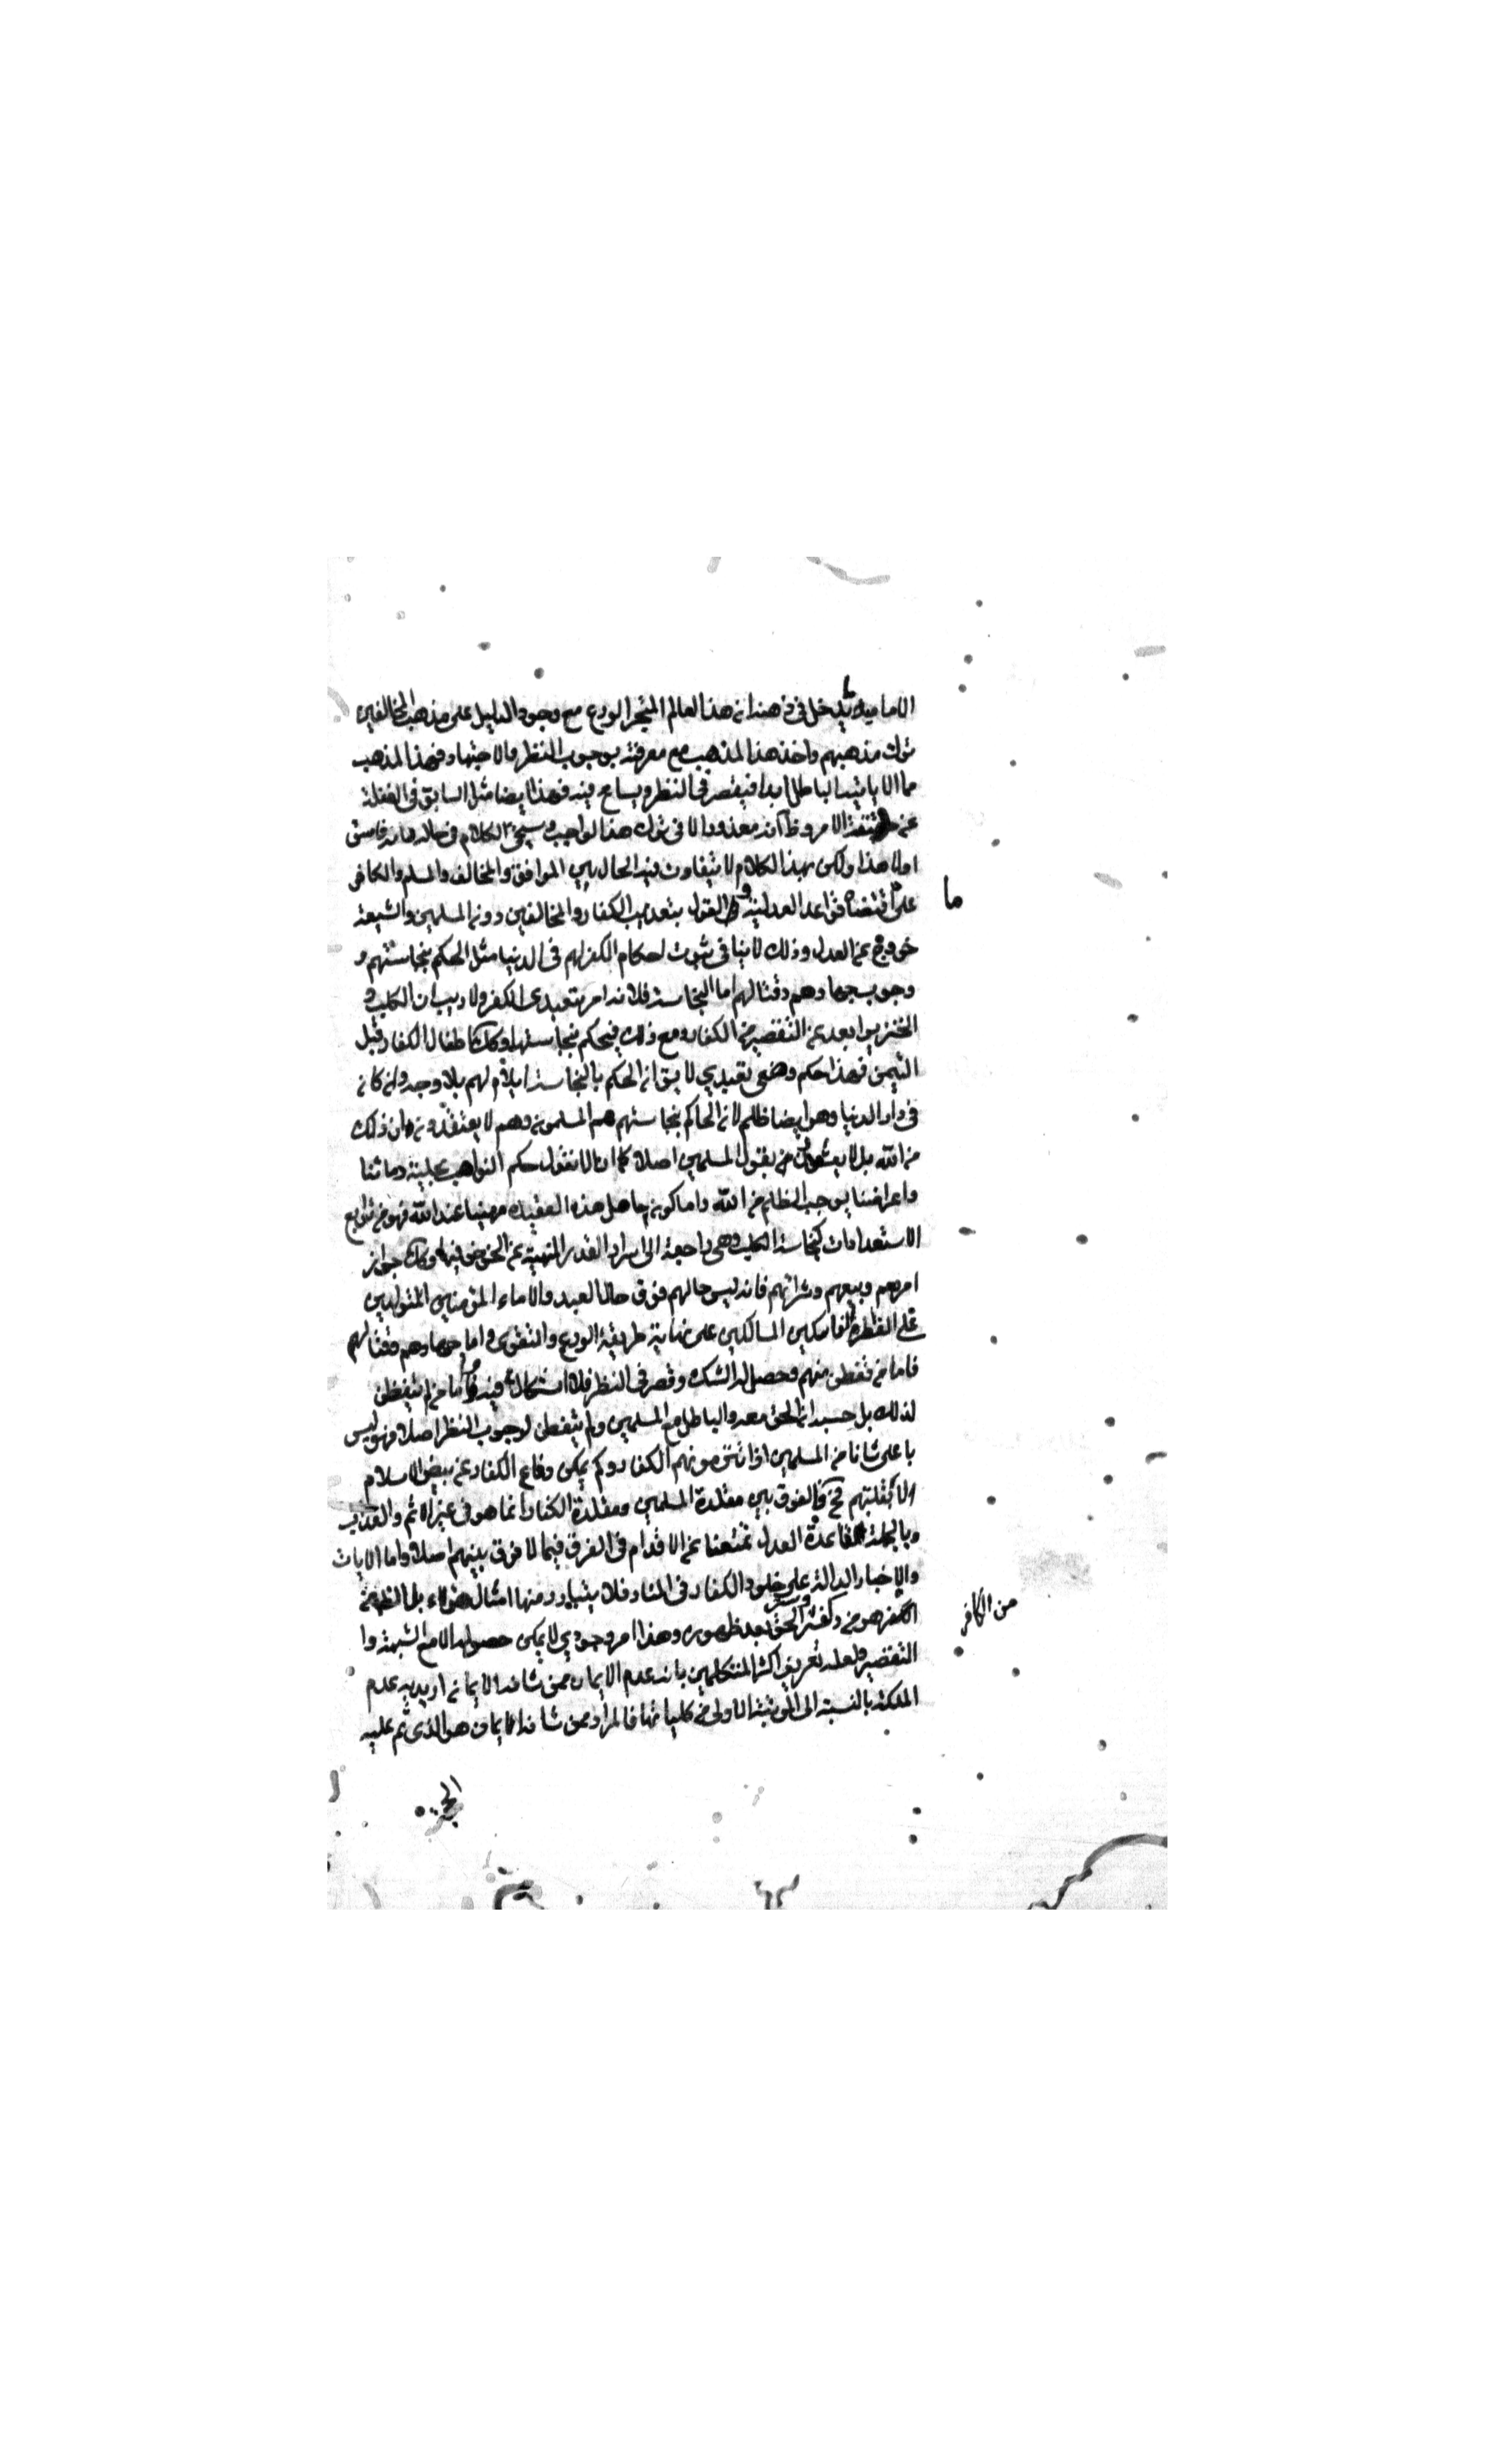 الامامية بل يدخل في ذهنه ان هذا العالم المتبحر الورع مع وجود الدليل على مذهب المخالفين
ترك مذهبهم واخذ هذا المذهب مع معرفته بوجوب النظر والاجتهاد فهذا المذهب
مما لا ياتيه الباطل ابدا فيقصر في النظر ويسامح فيه فهذا ايضا مثل السابق في الغفلة
عن حقيقة الامر وظ كونه معذورا لا في ترك هذا الواجب وسيجئ الكلام في حاله فانه فاسق
او لا هذا ولكن بهذا الكلام لا يتفاوت فيه الحال بين الموافق والمخالف والمسلم والكافر
على ما اقتضاه قواعد العدلية والقول بتعذيب الكفار والمخالفين دون المسلمين والشيعة
خروج عن العدل وذلك لا ينافي ثبوت احكام الكفر لهم في الدنيا مثل الحكم بنجاستهم و
وجوب جهادهم وقتالهم اما النجاسة فلانه امر تعبدي الكفر ولا ريب ان الكلب و
الخنزير ابعد عن التقصير من الكفار ومع ذلك فيحكم بنجاستها وكك اطفال الكفار قبل
التميز فهذا حكم وضعي تعبدي لا يق ان الحكم بالنجاسة ايلام لهم بلا وجه وان كان
في دار الدنيا وهو ايضا ظلم لان الحاكم بنجاستهم هم المسلمون وهم لا يعتقدون ان ذلك
من الله بل لا يعتنون من يقول المسلمين اصلا كما انا لا نقول حكم النواصب بحلية دمائنا
واعراضنا يوجب الظلم من الله واما كون جاهل هذه العقيدة مهينا عند الله فهو من توابع
الاستعدادات كنجاسة الكلب وهي راجعة الى اسرار القدر المنهية عن الخوض فيها وكك جواز
اسرهم وبيعهم وشرائهم فانه ليس حالهم فوق حال العبيد والاماء المؤمنين المتولدين
على الفطرة الناسكين السالكين على نهاية طريقة الورع والتقوى واما جهادهم وقتالهم
فاما من تفطن منهم وحصل له الشك وقصر في النظر فلا اشكال فيه واما من لم يتفطن
لذلك بل حسب ان الحق معه والباطل مع المسلمين ولم يتفطن لوجوب النظر اصلا فهو ليس
باعلى شانا من المسلمين اذا تترس بهم الكفار ولم يمكن دفاع الكفار عن بيض الاسلام
الا بقتلهم فح فالفرق بين مقلدة المسلمين ومقلدة الكفار انما هو في غير الاثم والعذاب
وبالجملة قاعدة العدل تمنعنا عن الاقدام في الفرق فيما لا فرق بينهم اصلا واما الايات
والاخبار الدالة على خلود الكفار في النار فلا يتبادر منها امثال هؤلاء بل الظ من
ما
من الكافر
الكفر هو من كفر وستر الحق بعد ظهوره وهذا امر وجودي لا يمكن حصوله الا مع الشبهة وا
التقصير ولعله تعريف اكثر المتكلمين بانه عدم الايمان ممن شانه الايمان اريد به عدم
الملكة بالنسبة الى المرتبة الاولى من كلياتها فالمراد ممن شانه الايمان هو الذي تم عليه